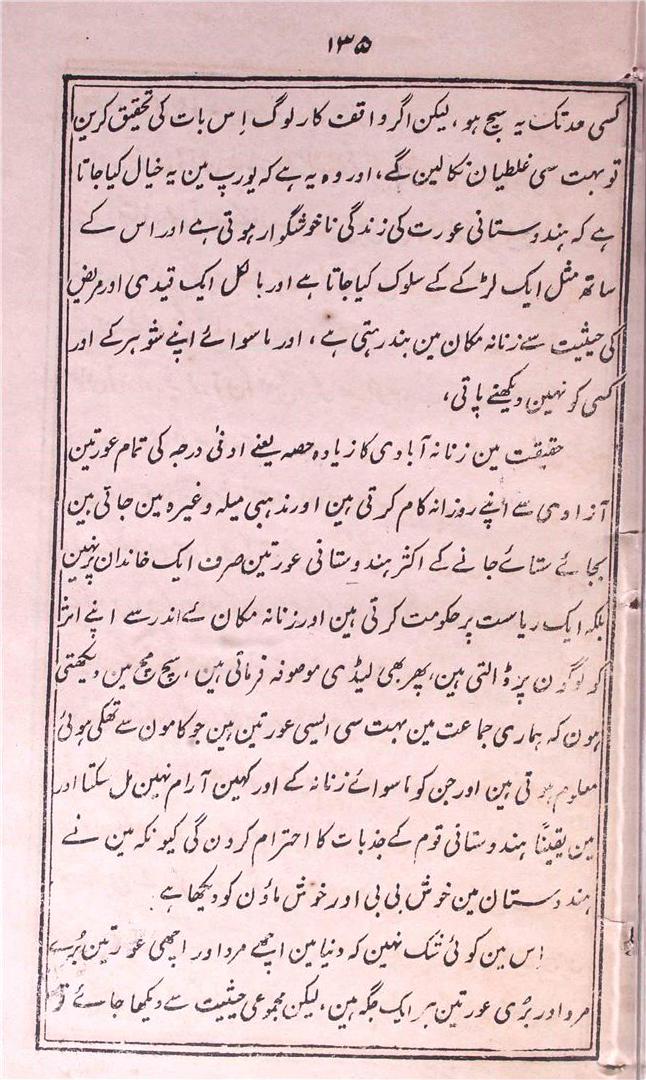 ۱۳۵
کسی حد تک یہ سچ ہو، لیکن اگر واقف کار لوگ اِس بات کی تحقیق کرین
تو بہت سی غلطیان نکالین گے، اور وہ یہ ہے کہ یورپ مین یہ خیال کیا جاتا
ہے کہ ہندوستانی عورت کی زندگی ناخوشگوار ہوتی ہے اور اس کے
ساتھ مثل ایک لڑکے کے سلوک کیا جاتا ہے اور بالکل ایک قیدی اور مریض
کی حیثیت سے زنانہ مکان مین بند رہتی ہے، اور ماسوائے اپنے شوہر کے اور
کسی کو نہین دیکھنے پاتی،
حقیقت مین زنانہ آبادی کا زیادہ حصہ یعنے ادنیٰ درجہ کی تمام عورتین
آزادی سے اپنے روزانہ کام کرتی ہین اور مذہبی میلہ وغیرہ مین جاتی ہین
بجائے ستائے جانے کے اکثر ہندوستانی عورتین صرف ایک خاندان پر نہین
بلکہ ایک ریاست پر حکومت کرتی ہین اور زنانہ مکان کے اندر سے اپنے اثر
کو لوگون پر ڈالتی ہین، پھر بھی لیڈی موصوفہ فرمائی ہین، سچ مچ مین دیکھتی
ہون کہ ہماری جماعت مین بہت سی ایسی عورتین ہین جو کامون سے تھکی ہوئی
معلوم ہوتی ہین اور جن کو ماسوائے زنانہ کے اور کہین آرام نہین مل سکتا اور
مین یقیناً ہندوستانی قوم کے جذبات کا احترام کرون گی کیونکہ مین نے
ہندوستان مین خوش بی بی اور خوش ماؤن کو دیکھا ہے۔
اِس مین کوئی شک نہین کہ دنیا مین اچھے مرد اور اچھی عورتین بُرے
مرد اور بُری عورتین ہر ایک جگہ ہین، لیکن مجموعی حیثیت سے دیکھا جائے تو